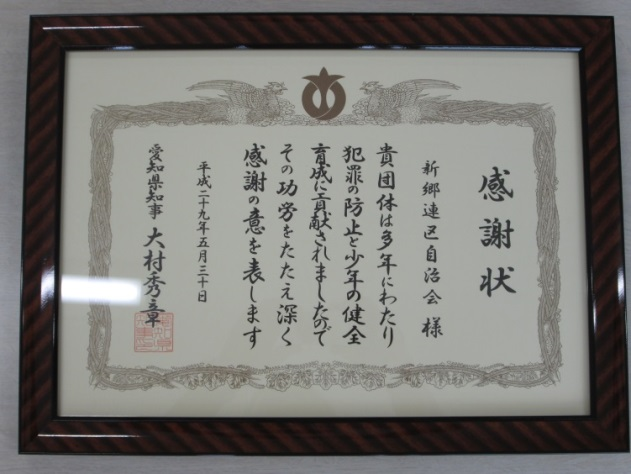 感謝状
新郷連区自治会様
貴団体は多年にわたり
犯罪の防止と少年の健全
育成に貢献されましたので
その功労をたたえ深く
感謝の意を表します
平成二十九年五月三十日
愛知県知事 大村秀章